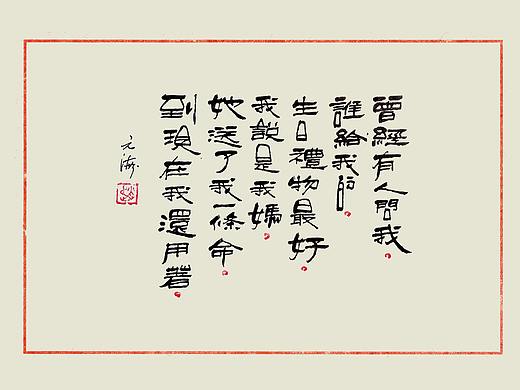 曾經有人問我
誰給我的
生日禮物最好
我說是我媽
她送了我一條命
到現在我還用着
元濤